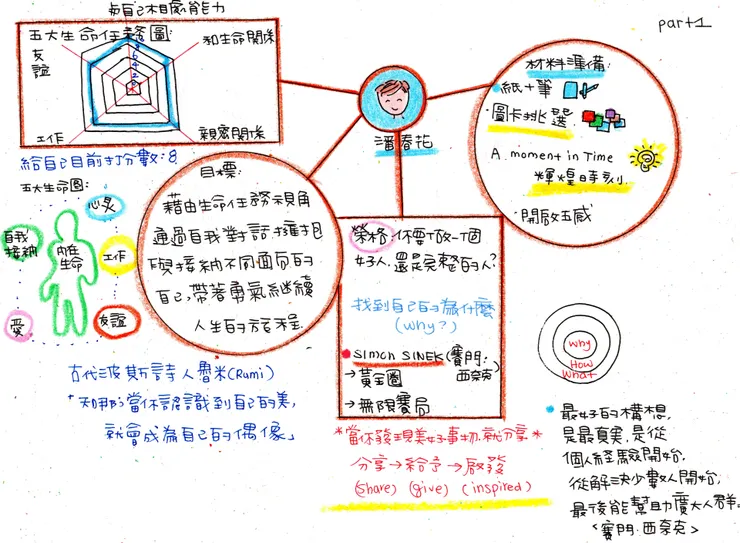 part1
與自己相處能力
五大生命任務圖:
友誼
和生命關係
工作
親密關係
8
6
4
2
給自己目前打分數:8
五大生命圖:
心灵
自我
接納
內在
生命
工作
愛
友誼
潘春花
材料準備:
紙+筆
·圖卡挑選
A moment in Time
輝煌時刻
·開啟五感
目標:
藉由生命任務視角
通過自我對話擁抱
與接納不同面向的
自己,帶著勇氣繼續
人生的旅程.
榮格:你要做一個
好人.還是完整的人?
找到自己的為什麼
(why?)
Simon SINEK(賽門.西奈克)
→黃金圈
→無限賽局
古代波斯詩人魯米(Rumi)
「知那當你認識到自己的美,
就會成為自己的偶像」
*當你發現美好事物.就分享*
分享→給予→啟發
(share) (give) (inspired)
why
How
What
最好的構想,
是最真實,是從
個人經驗開始,
從解決少數人開始,
最後能幫助廣大人群。
<賽門.西奈克>